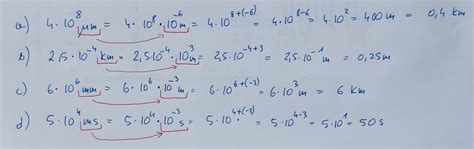 a) 4·10⁸ μm = 4·10⁸·10⁻⁶m = 4·10⁸⁺⁽⁻⁶⁾ = 4·10⁸⁻⁶ = 4·10² = 400m = 0,4 km
b) 2,5·10⁻⁴ km = 2,5·10⁻⁴·10³m = 2,5·10⁻⁴⁺³ = 2,5·10⁻¹m = 0,25m
c) 6·10⁶ mm = 6·10⁶·10⁻³m = 6·10⁶⁺⁽⁻³⁾ = 6·10³m = 6 km
d) 5·10⁴ ms = 5·10⁴·10⁻³s = 5·10⁴⁺⁽⁻³⁾ = 5·10⁴⁻³ = 5·10¹ = 50s